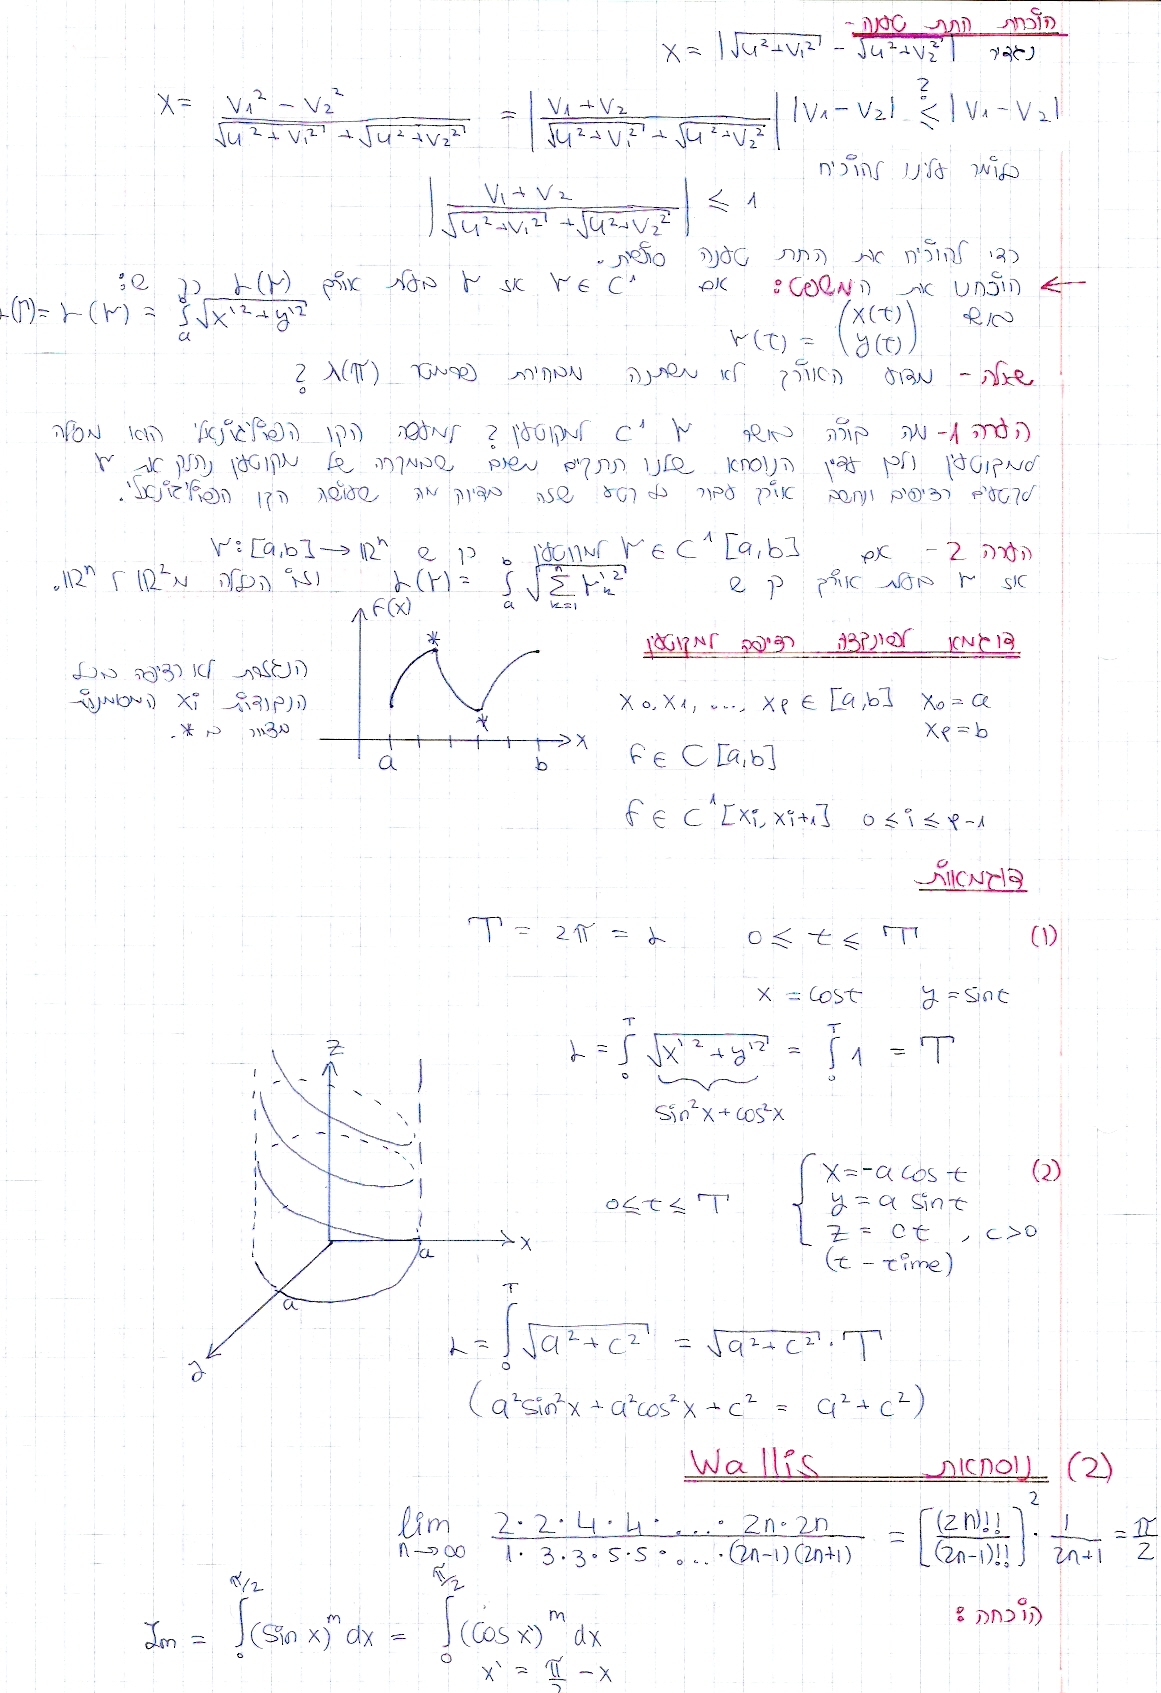 הוכחת התת טענה-
נגדיר X = |√u²+v₁² - √u²+v₂²|
X = (v₁² - v₂²)/(√u²+v₁² + √u²+v₂²) = |(v₁+v₂)/(√u²+v₁² + √u²+v₂²)| |v₁-v₂| ≤? |v₁-v₂|
כלומר עלינו להוכיח
|(v₁+v₂)/(√u²+v₁² + √u²+v₂²)| ≤ 1
כדי להוכיח את התת טענה
← הוכחנו את המשפט: אם γ ∈ C¹ אז γ בעלת אורך L(γ) כך ש:
L(γ) = ∫ₐ √x'²+y'²
כאשר γ(t) = (x(t) y(t))
שאלה - מדוע האורך לא משתנה מבחירת פרמטר λ(π) ?
הערה 1- מה קורה כאשר γ C¹ למקוטעין ? למעשה הקו הפוליגונאלי הוא מסילה
למקוטעין ולכן עדין הנוסחא שלנו תתקיים משום שבמקרה של מקוטעין נחלק את γ
לקטעים רציפים ונחשב אורך עבור כל קטע שזה בדיוק מה שעושה הקו הפוליגונאלי.
הערה 2- אם γ ∈ C¹[a,b] למקוטעין כך ש γ:[a,b]→ℝⁿ
אז γ בעלת אורך כך ש L(γ) = ∫ₐᵇ √Σₖ₌₁ⁿ γ'ₖ² וזו הכללה מ ℝ² ל ℝⁿ.
דוגמא לפונקציה רציפה למקוטעין
x₀,x₁,...,xₚ ∈ [a,b] x₀=a
xₚ=b
f ∈ C[a,b]
f ∈ C¹[xᵢ,xᵢ₊₁] 0≤i≤p-1
f(x)
*
*
a b x
הנגזרת לא רציפה בכל
הנקודות xᵢ המסומנות
בציור ב *.
דוגמאות
(1) 0≤t≤T T = 2π = L
x = cost y = sint
L = ∫₀ᵀ √x'²+y'² = ∫₀ᵀ 1 = T
sin²x+cos²x
(2) { x=-a cost
y = a sint
z = ct , c>0
(t - time)
0≤t≤T
z
x
a
a
y
L = ∫₀ᵀ √a²+c² = √a²+c² · T
(a²sin²x + a²cos²x + c² = a²+c²)
(2) נוסחאת Wallis
lim n→∞ (2·2·4·4·....·2n·2n)/(1·3·3·5·5·....·(2n-1)(2n+1)) = [(2n)!!/(2n-1)!!]² · 1/(2n+1) = π/2
הוכחה:
Iₘ = ∫₀^(π/2) (sin x)ᵐ dx = ∫₀^(π/2) (cos x')ᵐ dx
x' = π/2 - x